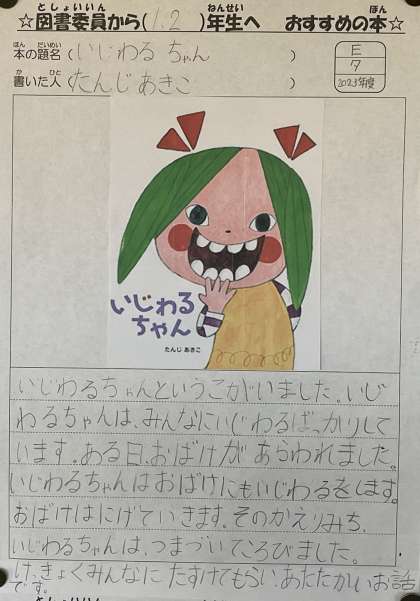 ☆図書委員から(1.2)年生へ おすすめの本☆
本の題名(いじわるちゃん)
書いた人(たんじあきこ)
E
タ
2023年度
いじわる
ちゃん
たんじ あきこ
いじわるちゃんというこがいました。いじ
わるちゃんは、みんなにいじわるばっかりして
います。ある日、おばけがあらわれました。
いじわるちゃんはおばけにもいじわるをします。
おばけはにげていきます。そのかえりみち、
いじわるちゃんは、つまづいてころびました。
けっきょくみんなにたすけてもらいあたたかいお話
です。